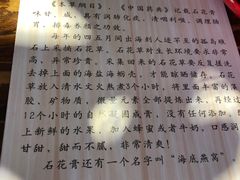 《本草纲目》、《中国药典》记载石花膏
味甘、咸，具有润肺化痰，清咽利喉、调理肠
胃、排毒养颜之功效。
每年的四五月间出海到人迹罕至的孤岛礁
石上采摘石花草，石花草对生长环境要求非常
高，异常珍贵，采集回来的石花草要反复揉洗
去掉上面的海盐海蛎壳，才能晾晒储存。石花
草在传统人工古法文火熬煮3个小时，将里面丰富的果
胶，矿物质，微量元素全部提炼出来，再经过
12个小时的自然凝固成膏，没有任何添加，
上新鲜的水果，加入蜂蜜或者牛奶，口感润
甘甜，甜而不腻，非常清爽！
石花膏还有一个名字叫"海底燕窝"。